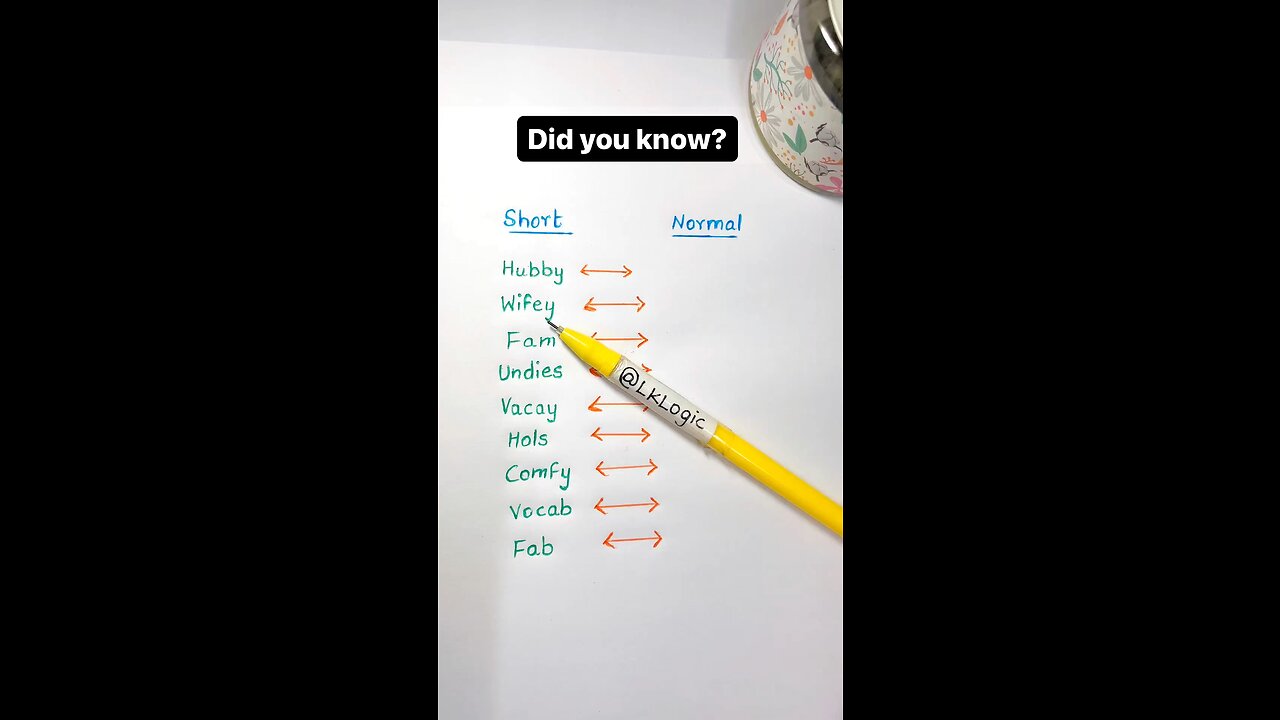 Did you know?
Short Normal
Hubby
Wifey
Fam
Undies
@LKLogic
Vacay
Hols
Comfy
Vocab
Fab